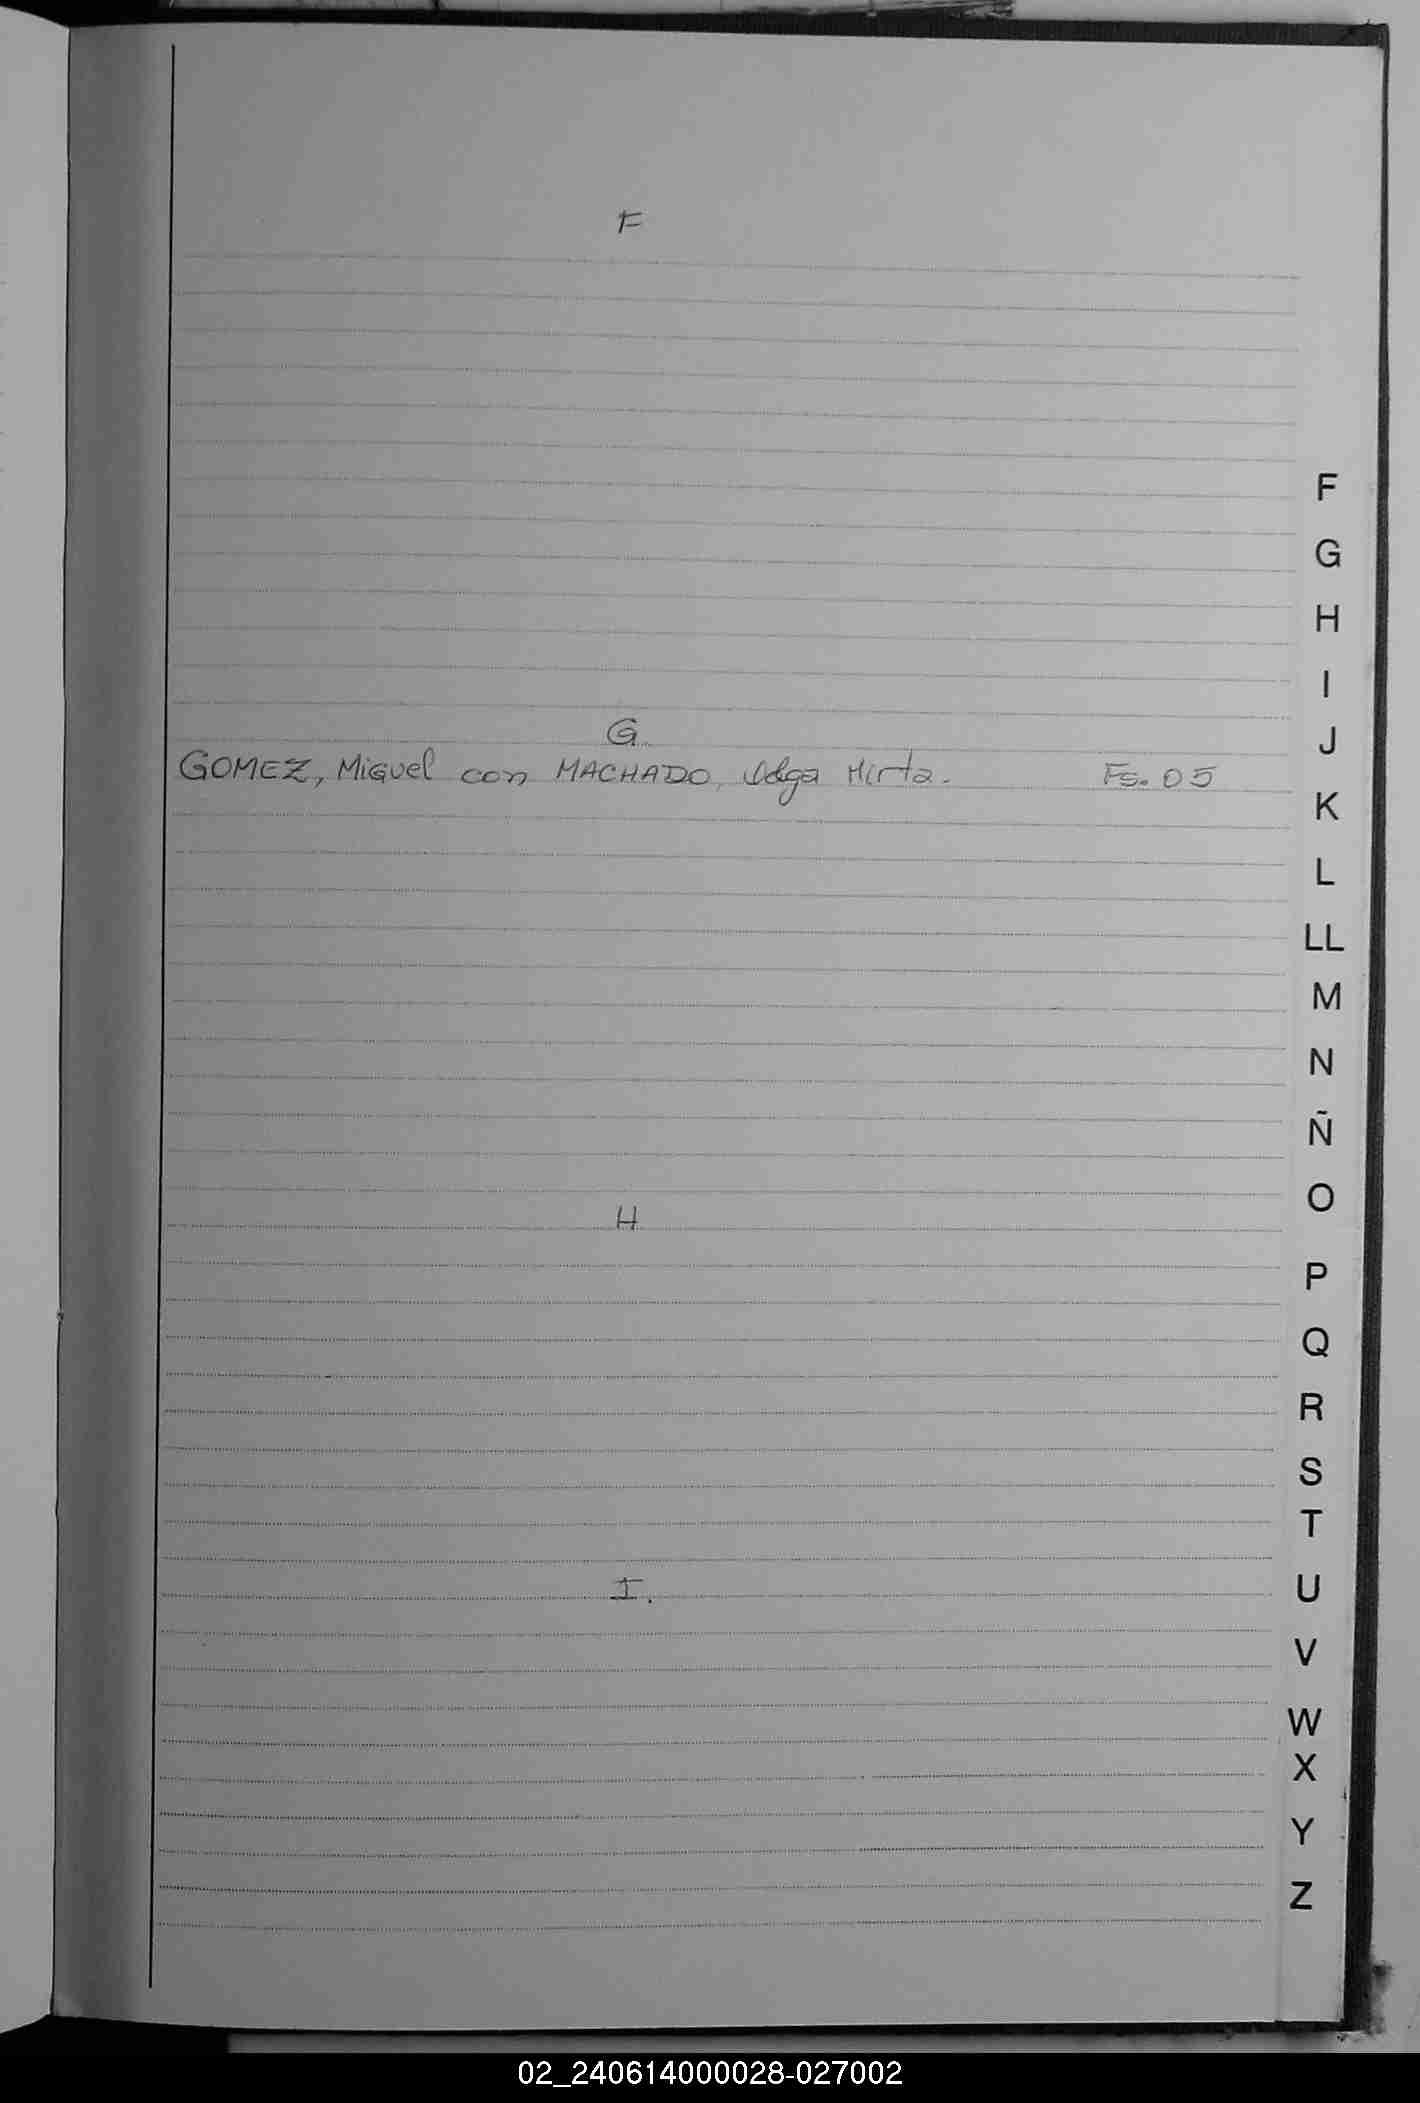 F
F
G
H
I
G.
J
GOMEZ, Miguel con MACHADO, Olga Mirta. Fs. 05
K
L
LL
M
N
Ñ
O
H
P
Q
R
S
T
I.
U
V
W
X
Y
Z
02_240614000028-027002